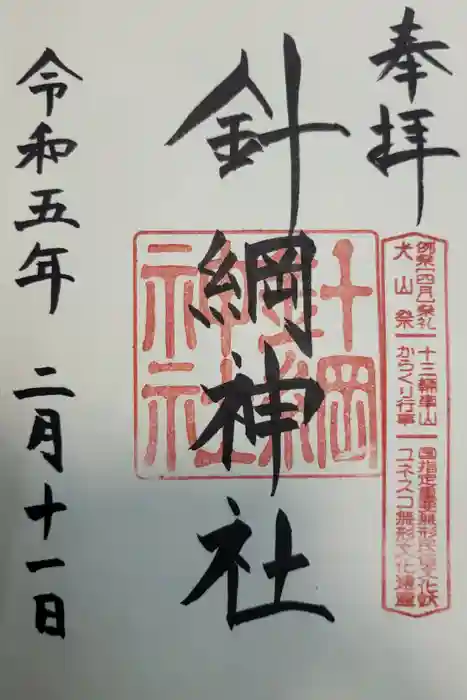 奉拝
例祭(四月)祭礼
犬山祭
十三輌車山
からくり行事
国指定重要無形民俗文化財
ユネスコ無形文化遺産
針綱神社
針綱神社
令和五年 二月十一日